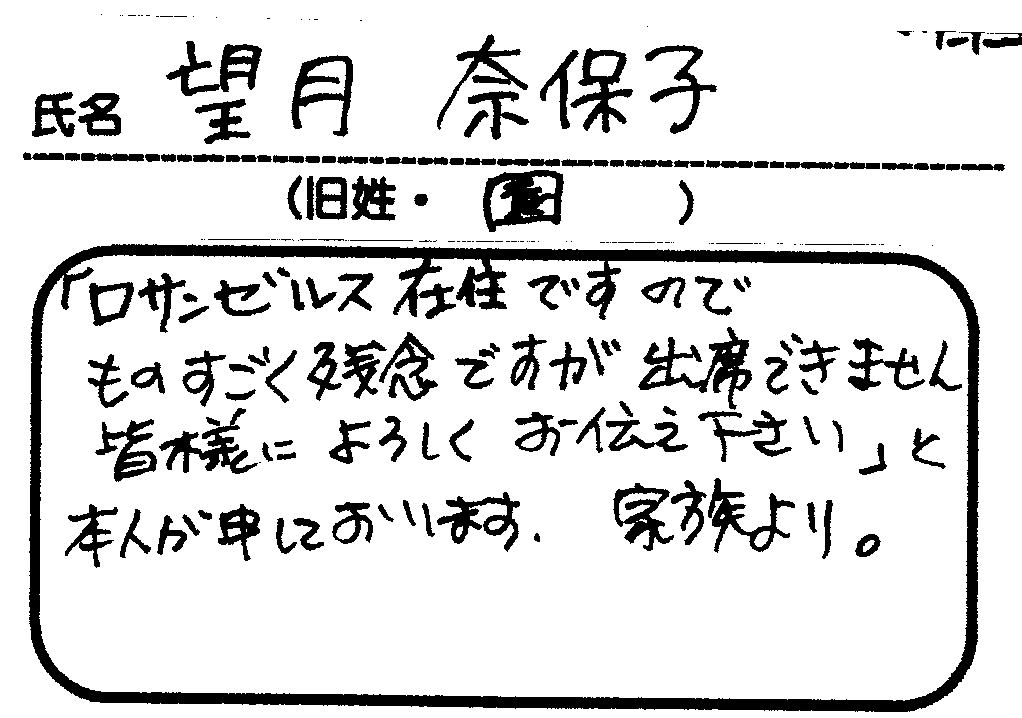 氏名 望月 奈保子
(旧姓・ )
「ロサンゼルス在住ですので
ものすごく残念ですが出席できません
皆様によろしくお伝え下さい」と
本人が申しております. 家族より。